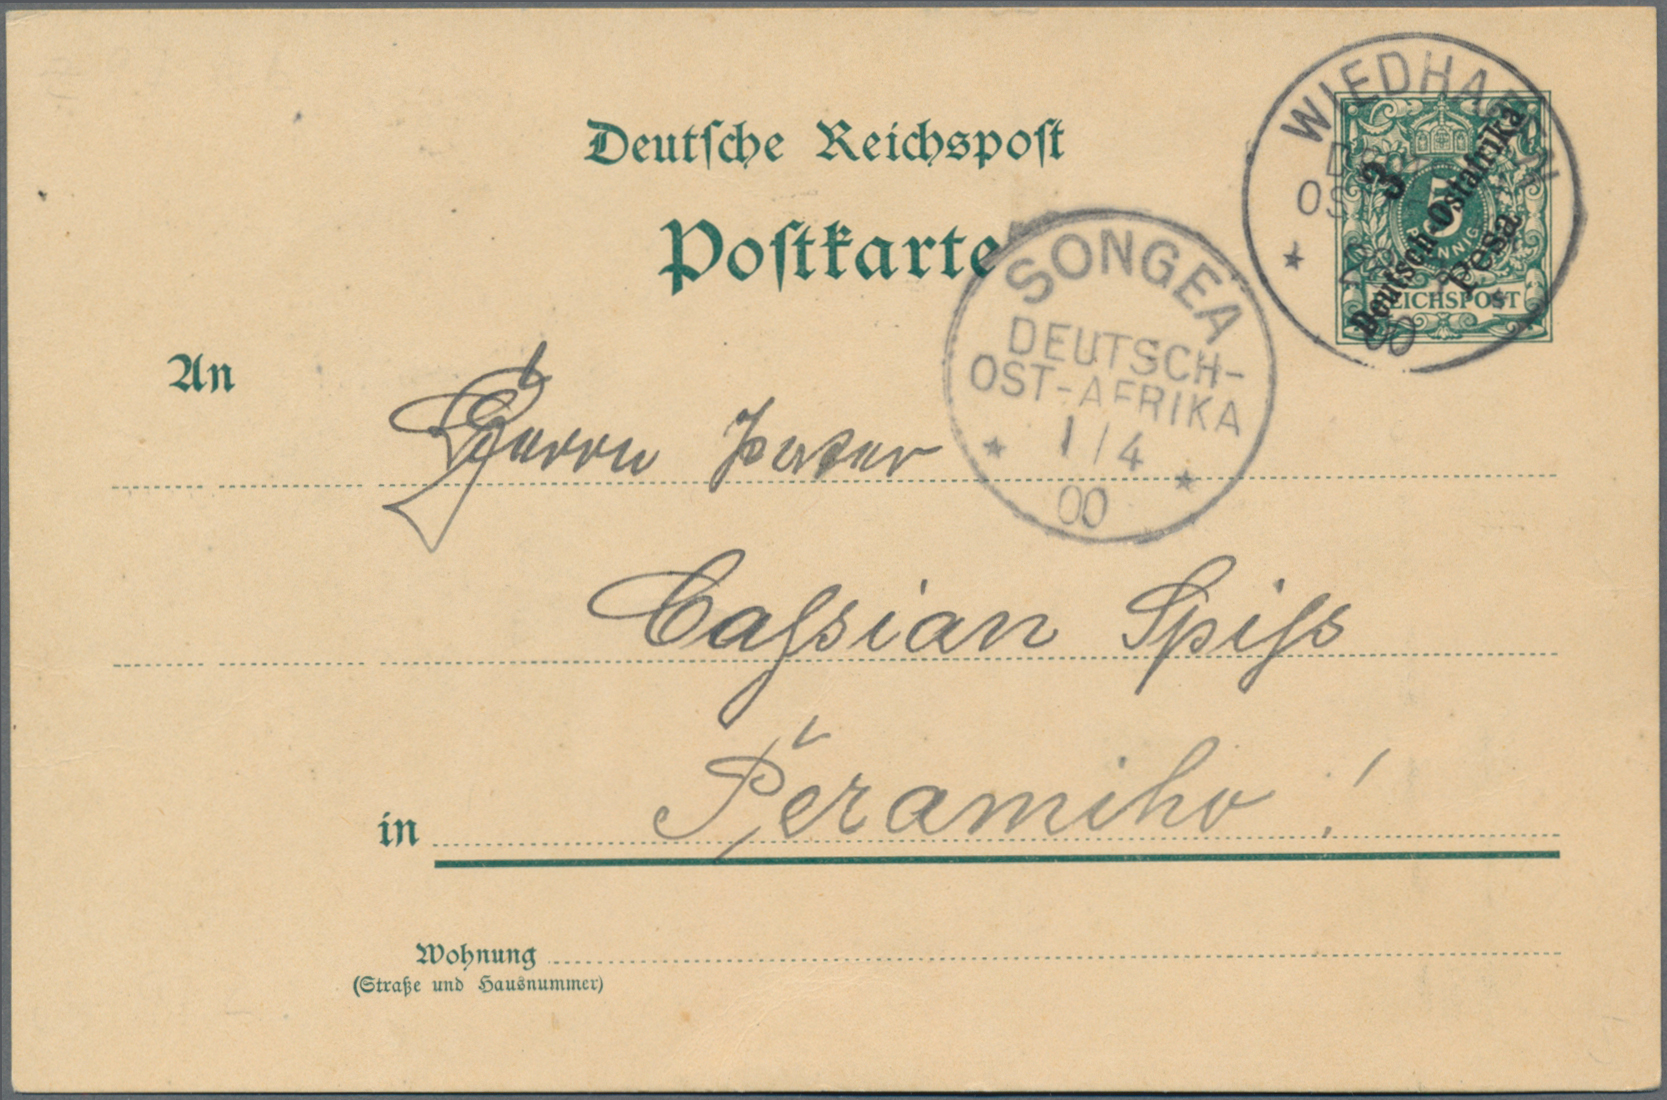 Deutsche Reichspost
Postkarte
WIEDHAFEN
3
5
PFENNIG
Deutsch-Ostafrika
Pesa
REICHSPOST
00
SONGEA
DEUTSCH-
OST-AFRIKA
1/4
00
An
Herrn Pater
Cassian Spiss
in Peramiho!
Wohnung
(Straße und Hausnummer)